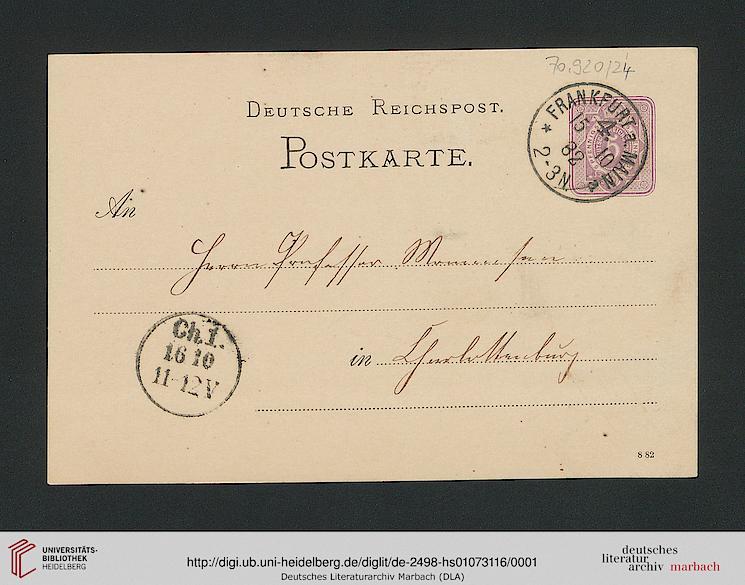 70.920/24
DEUTSCHE REICHSPOST.
POSTKARTE.
* FRANKFURT a MAIN a
4.
15 10
82
2-3N.
5
An
Herrn Professor Mommsen
in Charlottenburg
Ch.1.
16 10
11-12V
8 82
UNIVERSITÄTS-
BIBLIOTHEK
HEIDELBERG
http://digi.ub.uni-heidelberg.de/diglit/de-2498-hs01073116/0001
Deutsches Literaturarchiv Marbach (DLA)
deutsches
literatur
archiv marbach